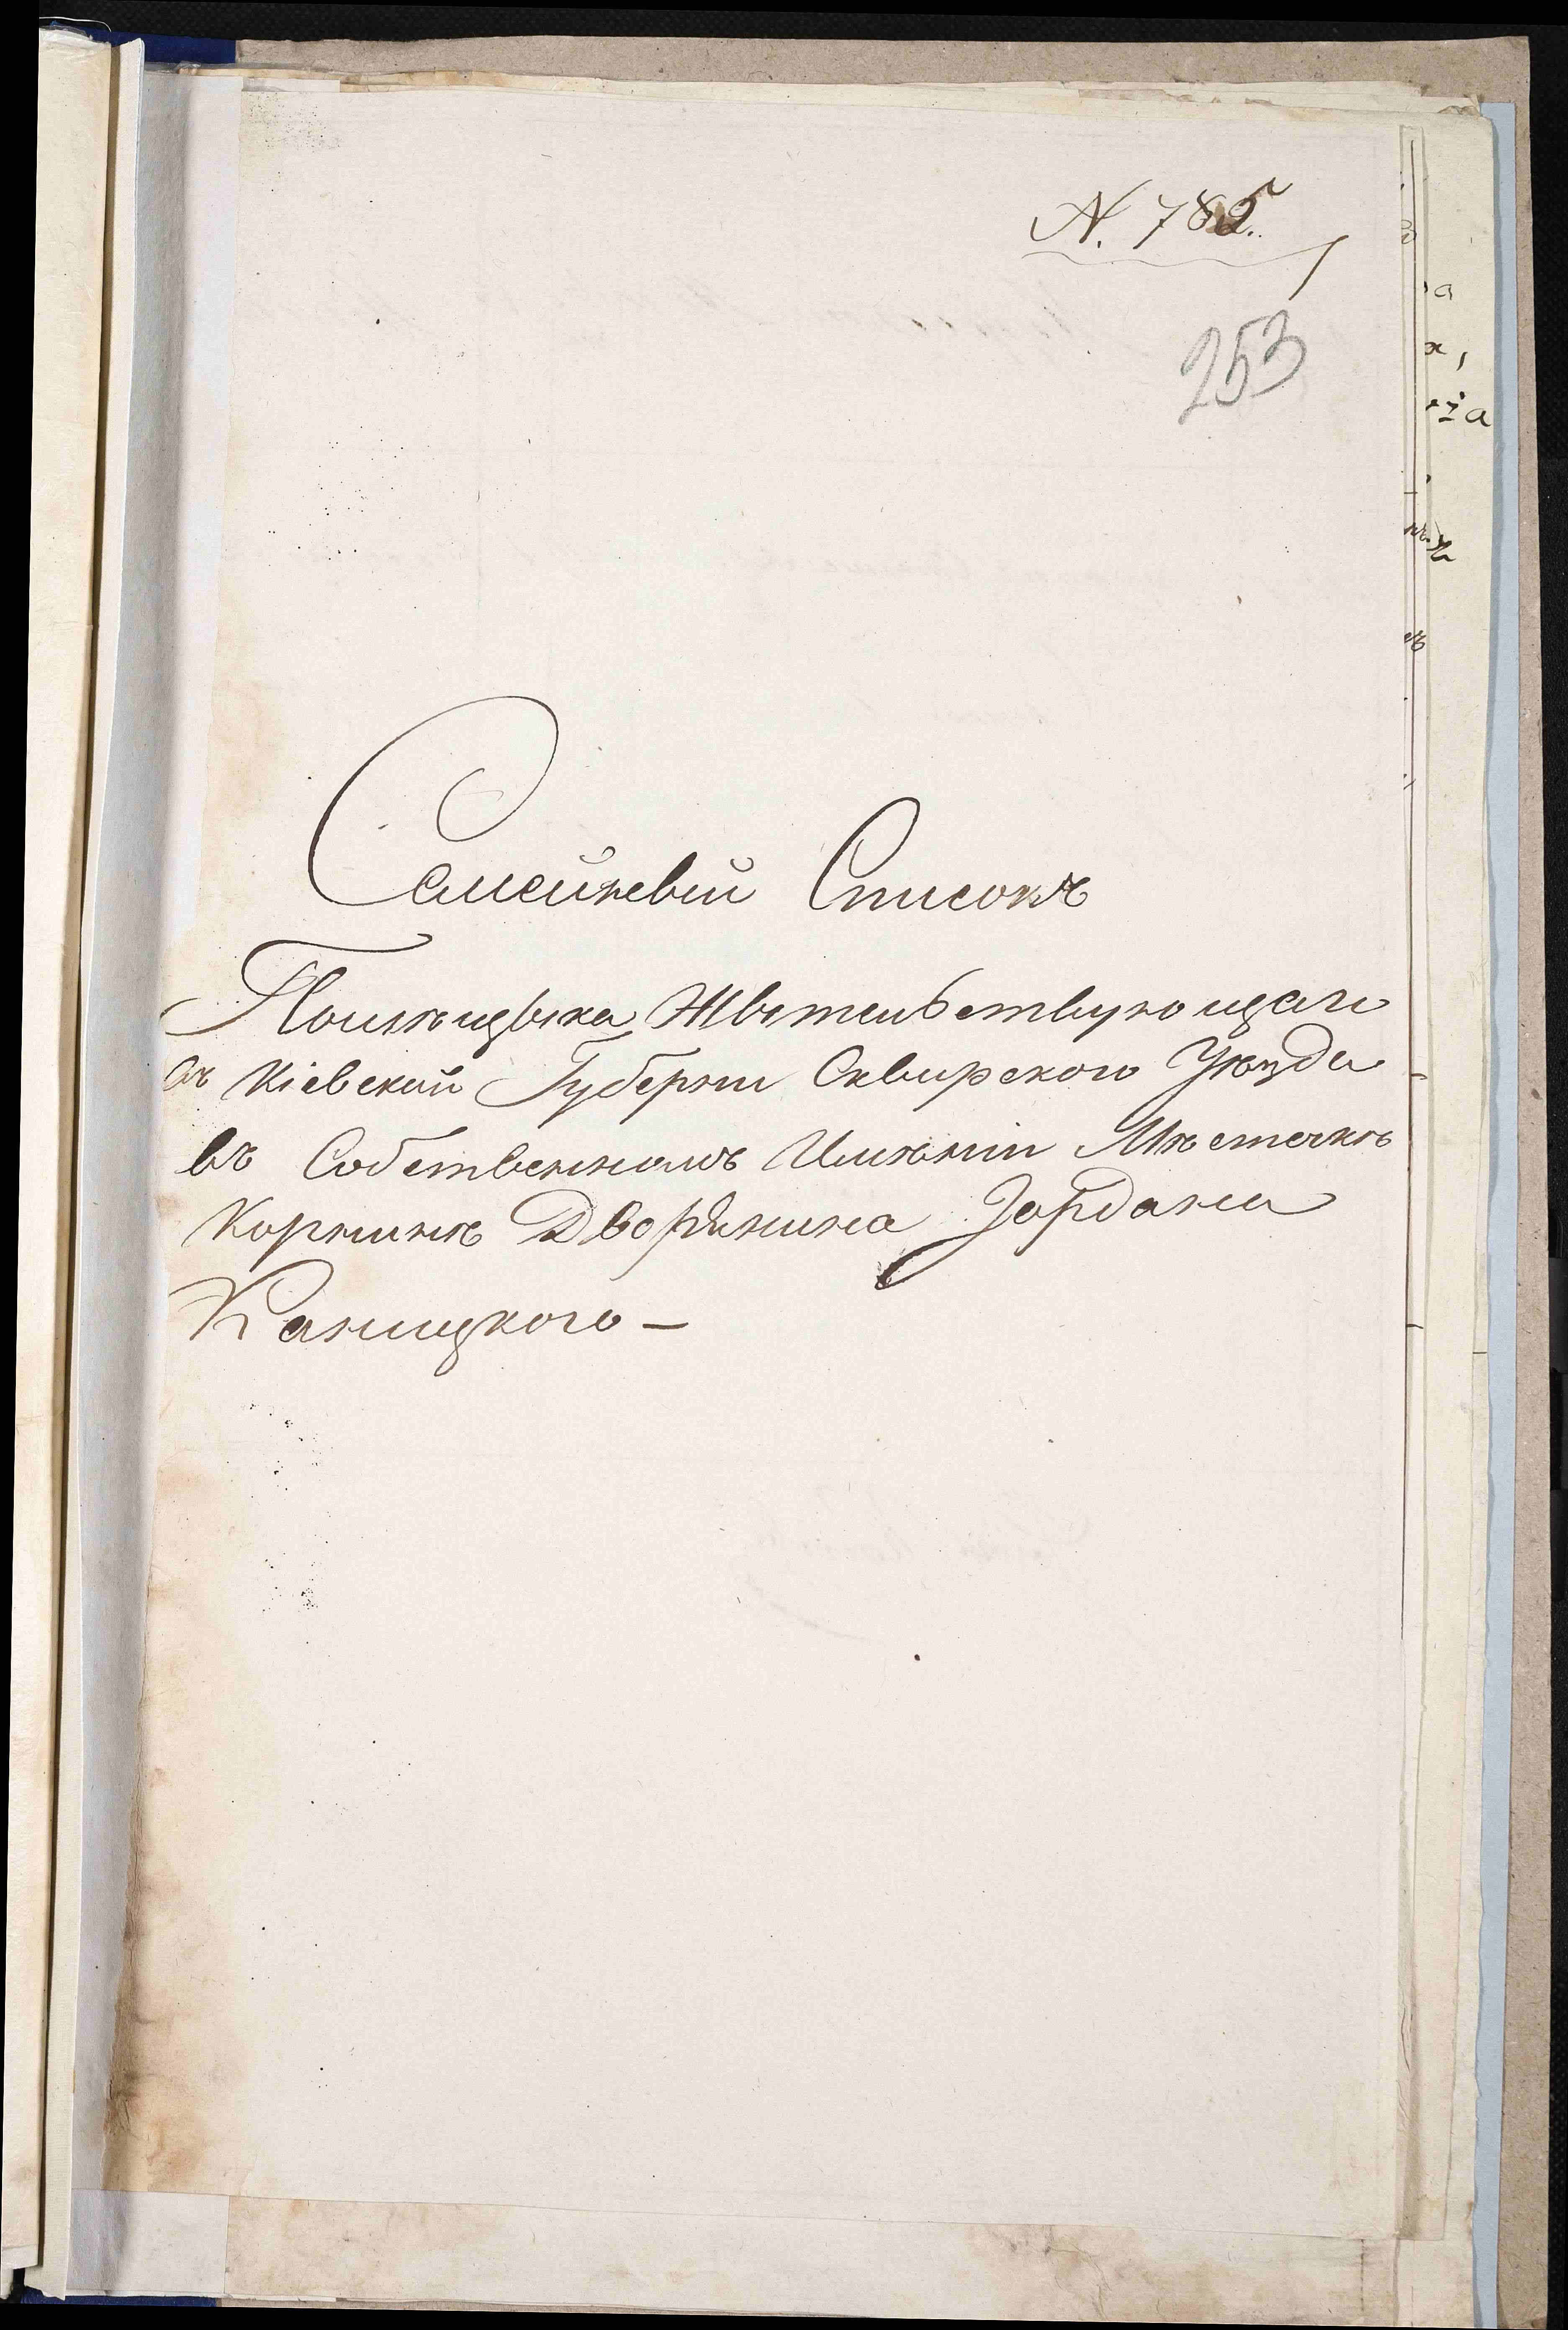 N. 785.
253
Семейный Списокъ
Помѣщыка Жытельствующаго
въ Кіевской Губерни Сквирского Уѣзда
въ Собственномъ Имѣніи Мѣстечкѣ
Корнинѣ Дворянина Іордана
Каницкого –